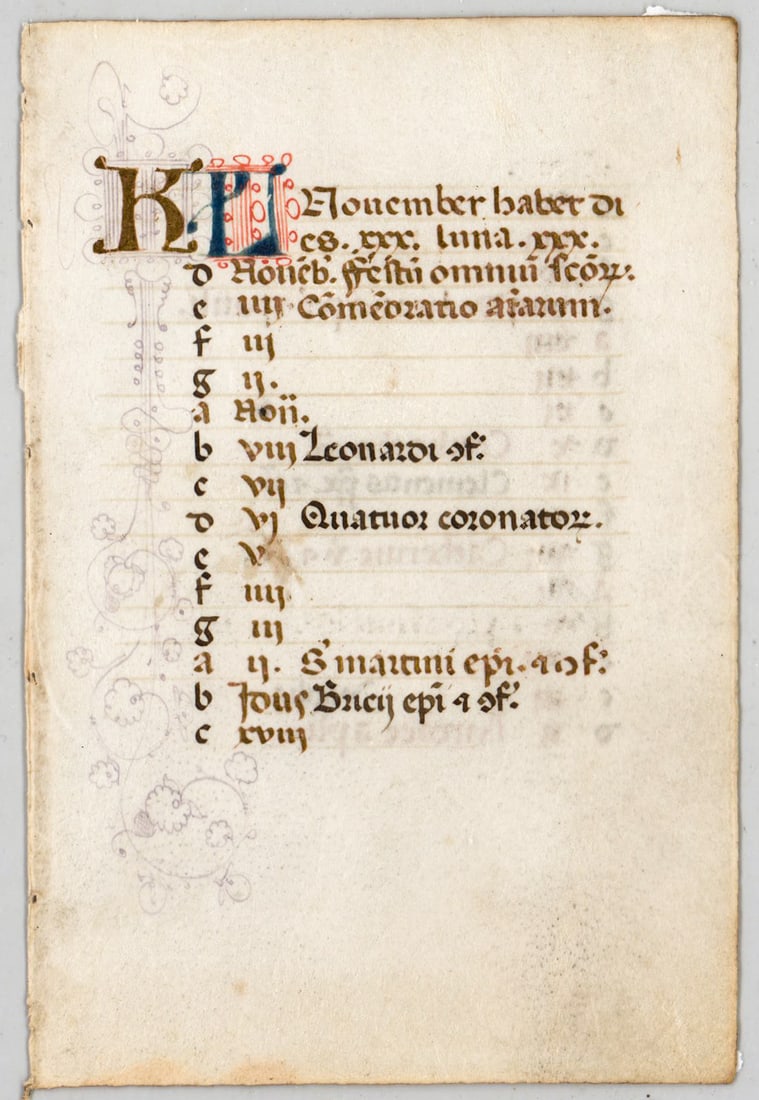 KL November habet di
es. xxx. luna. xxx.
d Novēb. ffestū omniū scōꝝ:
e iiij Cōmēoratio aīarum.
f iij
g ij.
a Noñ.
b viij Leonardi ꝯf:
c vij
d vj Quatuor coronatoꝝ.
e v
f iiij
g iij
a ij. S martini epī. ⁊ ꝯf:
b Idus Bricij epī ⁊ ꝯf:
c xviij